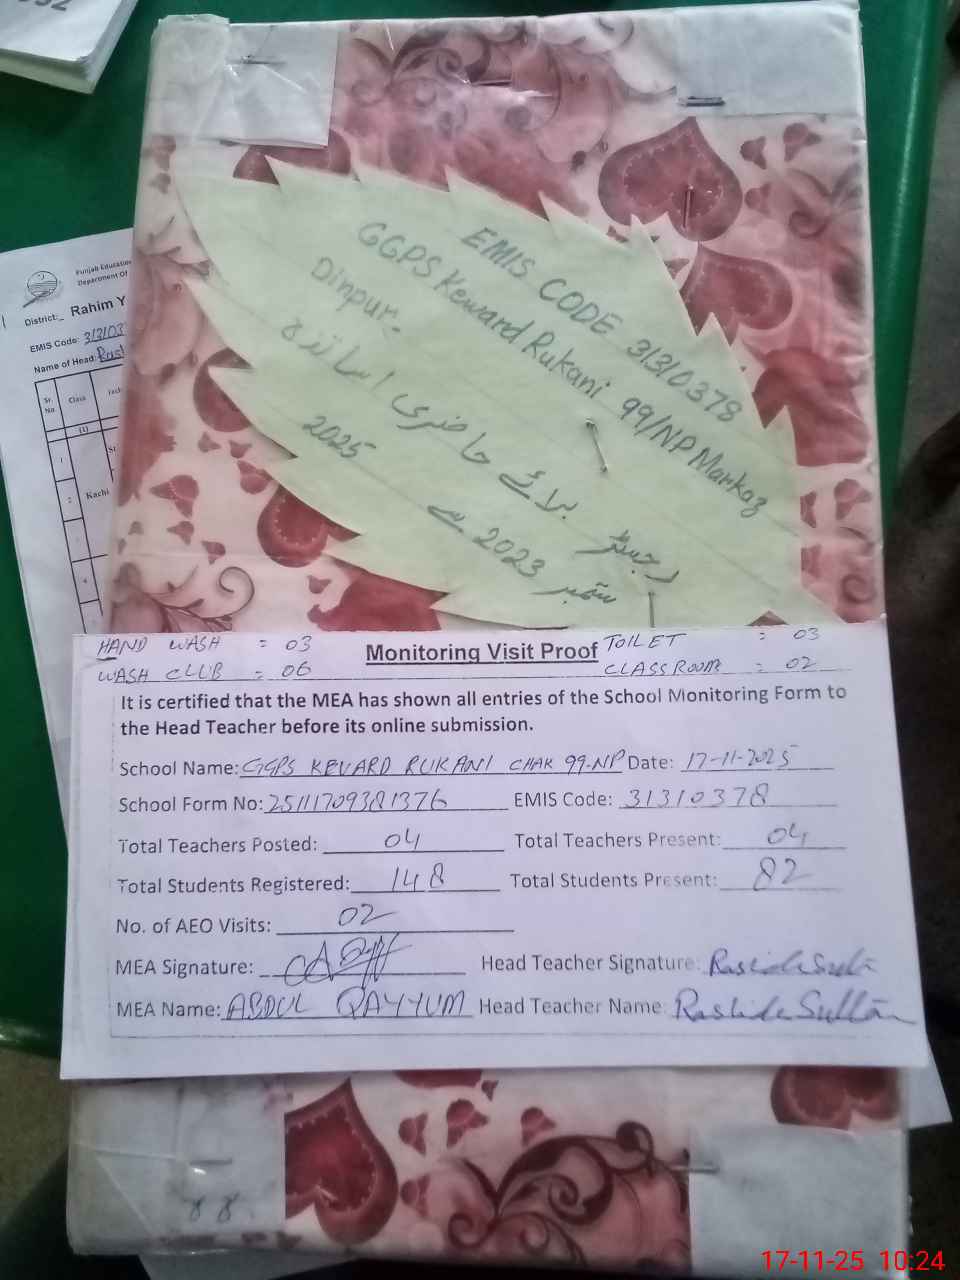 EMIS CODE 31310378
GGPS Keward Rukani 99/NP Markaz
Dinpur.
رجسٹر برائے حاضری اساتذہ
ستمبر 2023 سے 2025
Punjab Education
Department Of
District:_ Rahim Y
EMIS Code: 313103
Name of Head:
Sr. No.
Class
(1)
1
2 Kachi
4
HAND WASH : 03
TOILET : 03
WASH CLUB = 06
CLASS ROOM = 02
Monitoring Visit Proof
It is certified that the MEA has shown all entries of the School Monitoring Form to
the Head Teacher before its online submission.
School Name: GGPS KEVARD RUKANI CHAK 99-NP Date: 17-11-2025
School Form No: 25111709381376 EMIS Code: 31310378
Total Teachers Posted: 04 Total Teachers Present: 04
Total Students Registered: 148 Total Students Present: 82
No. of AEO Visits: 02
MEA Signature: Head Teacher Signature: Rashida Sul
MEA Name: ABDUL QAYYUM Head Teacher Name: Rashida Sultan
17-11-25 10:24